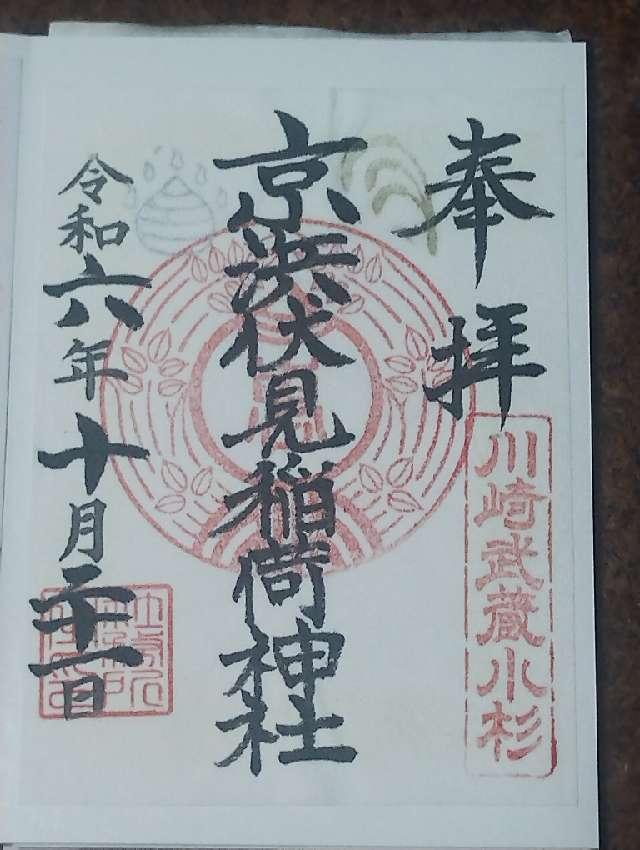 奉拝
川崎武蔵小杉
京濱伏見稲荷神社
令和六年十月二十一日